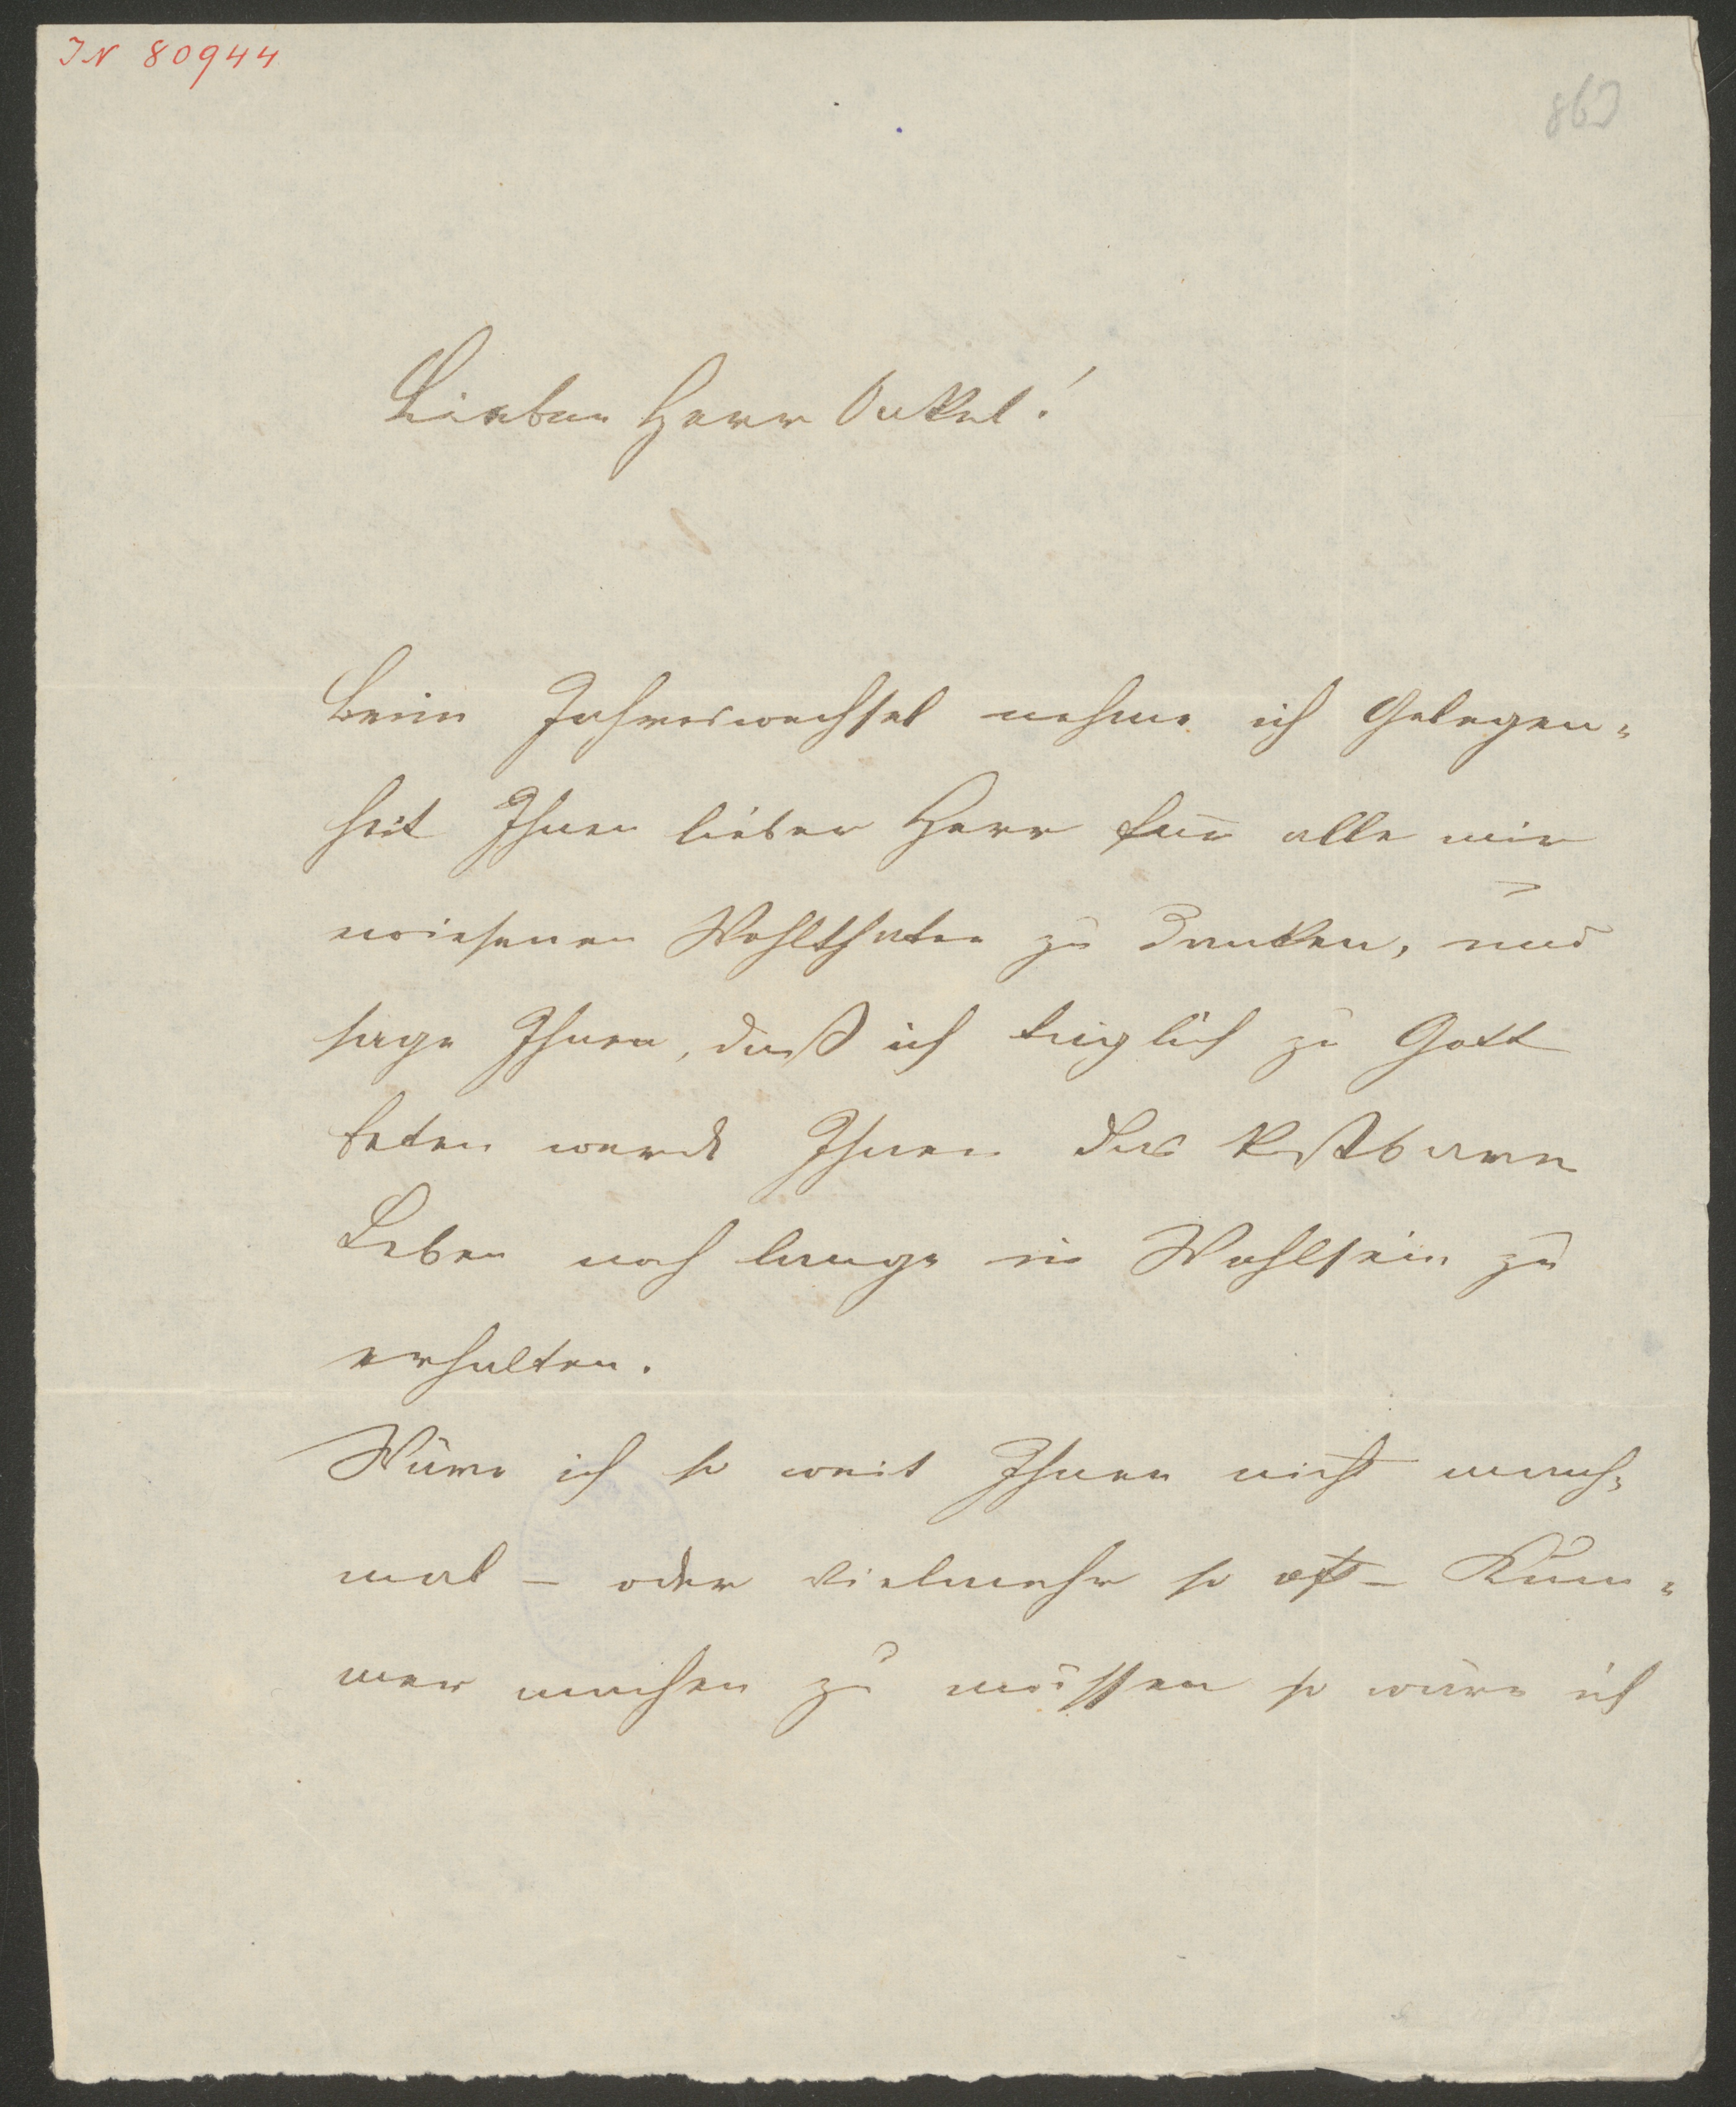 IN 80944
863
Lieber Herr Onkel!
Beim Jahreswechsel nehme ich Gelegen-
heit Ihnen lieber Herr für alle mir
erwiesenen Wohlthaten zu danken, und
sage Ihnen, daß ich täglich zu Gott
beten werde Ihnen das kostbare
Leben noch lange in Wohlsein zu
erhalten.
Wäre ich so weit Ihnen nicht manch-
mal – oder vielmehr so oft – Kum-
mer machen zu müssen so wäre ich